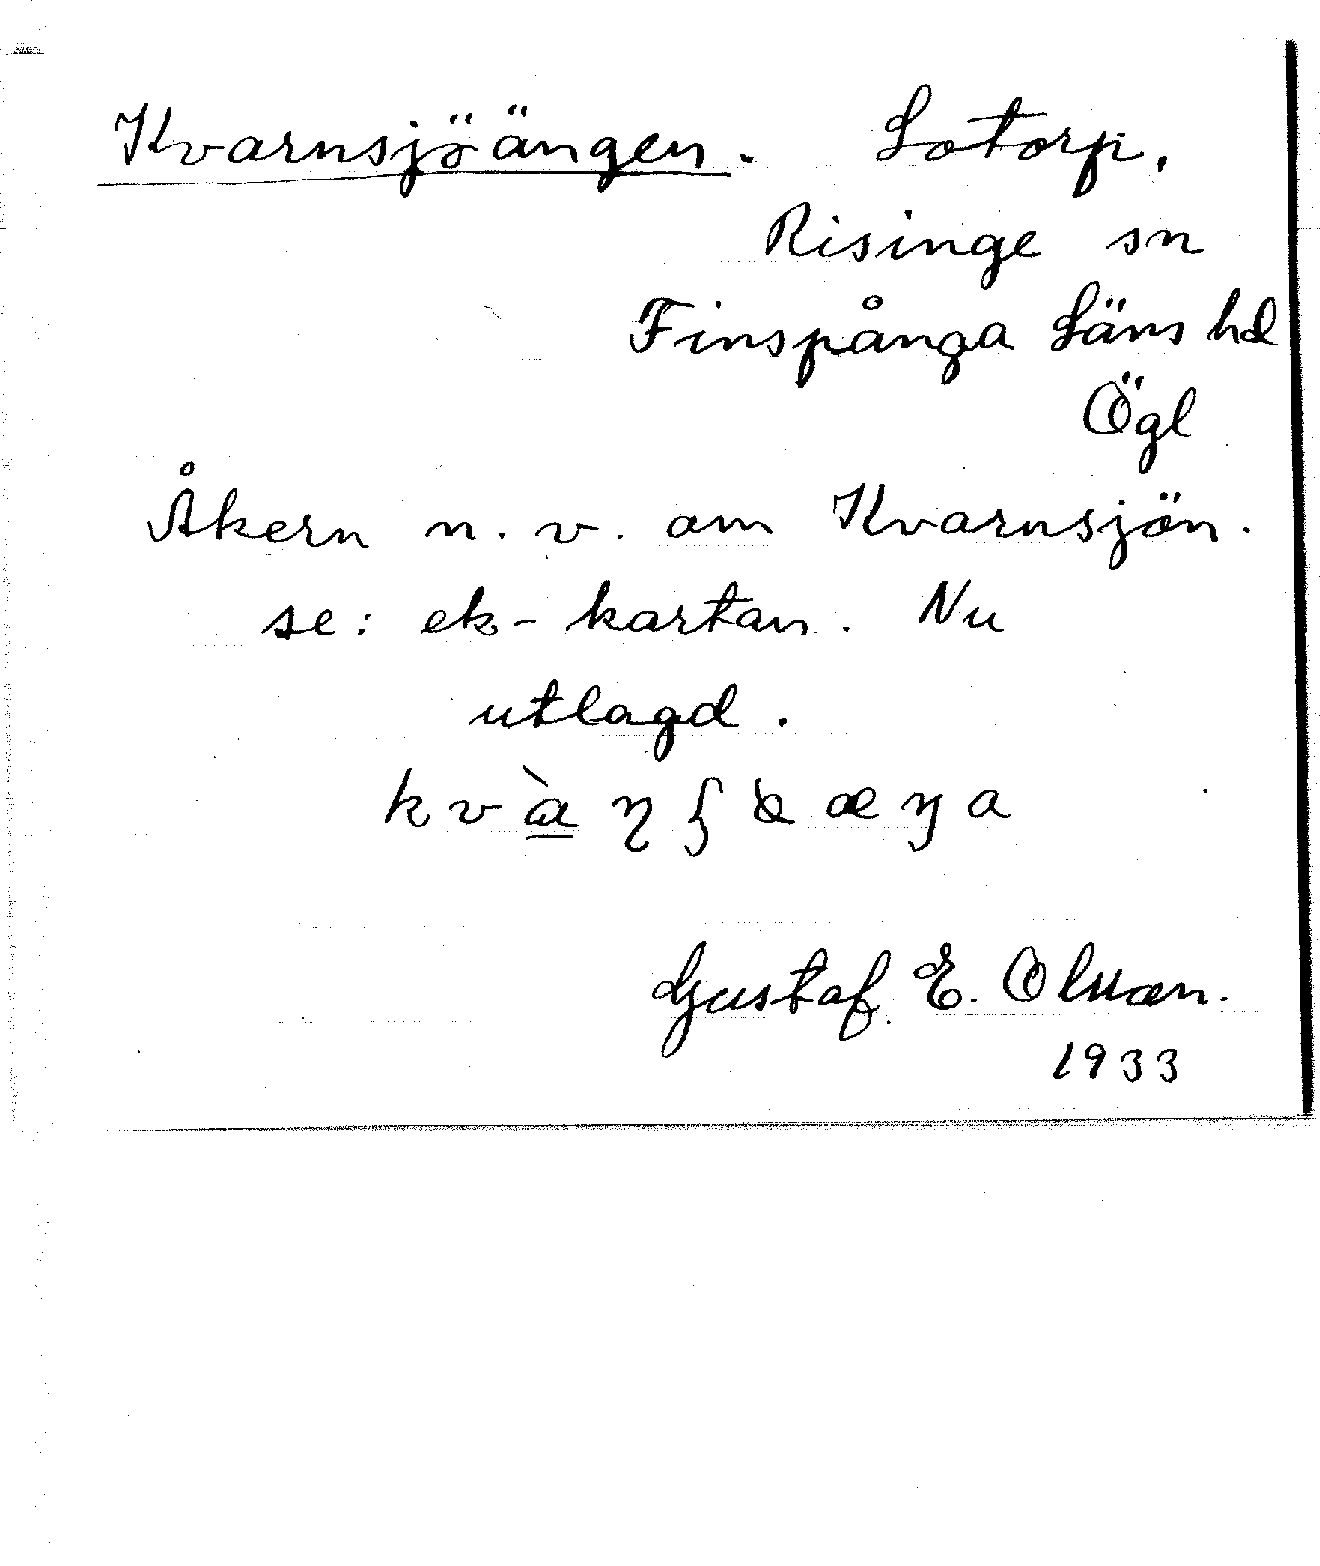 Kvarnsjöängen. Lotorp,
Risinge sn
Finspånga Läns hd
Ögl
Åkern n. v. om Kvarnsjön.
se: ek-kartan. Nu
utlagd.
Gustaf E. Olsson.
1933